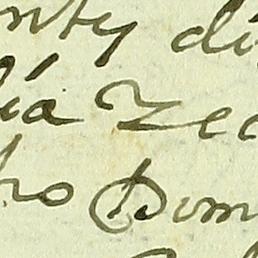 nty di
lia Zec
ho Dom